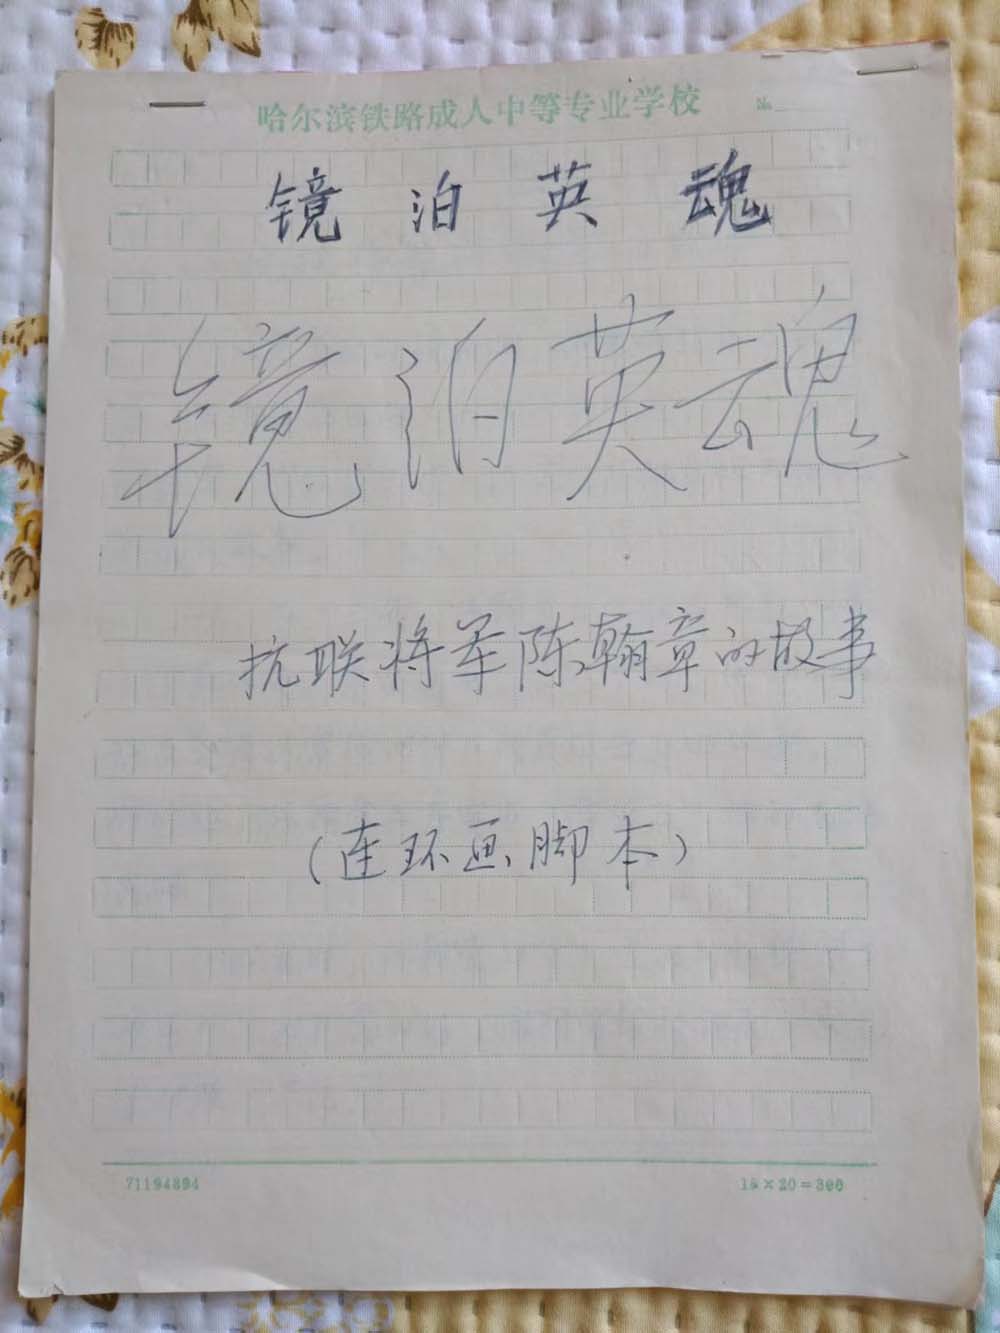 哈尔滨铁路成人中等专业学校 №
镜泊英魂
镜泊英魂
抗联将军陈翰章的故事
(连环画脚本)
71194894 15×20=300